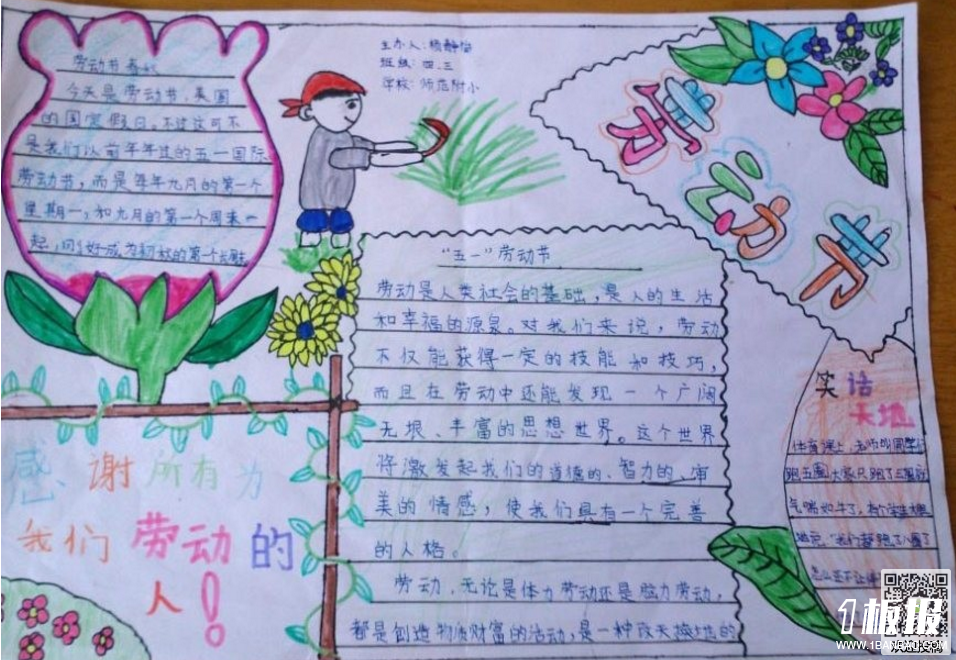 劳动节
今天是劳动节,美国
的国定假日。不过这可不
是我们以前年年过的五一国际
劳动节,而是每年九月的第一个
星期一,和九月的第一个周末一
起,刚好成为初秋的第一个长假
主办人:
班级:四.三
学校:师范附小
劳动节
“五一”劳动节
劳动是人类社会的基础,是人的生活
和幸福的源泉。对我们来说,劳动
不仅能获得一定的技能和技巧,
而且在劳动中还能发现一个广阔
无垠、丰富的思想世界。这个世界
将激发起我们的道德的、智力的、审
美的情感,使我们具有一个完善
的人格。
劳动,无论是体力劳动还是脑力劳动,
都是创造物质财富的活动,是一种改天换地的
笑话
天地
体育课上,老师叫同学们
跑五圈,大家只跑了三圈就
气喘如牛了,有个学生大胆
地说:“我们都跑了八圈了
怎么还不让停
感谢所有为
我们劳动的
人!
1板报
WWW.1BANBAO.COM